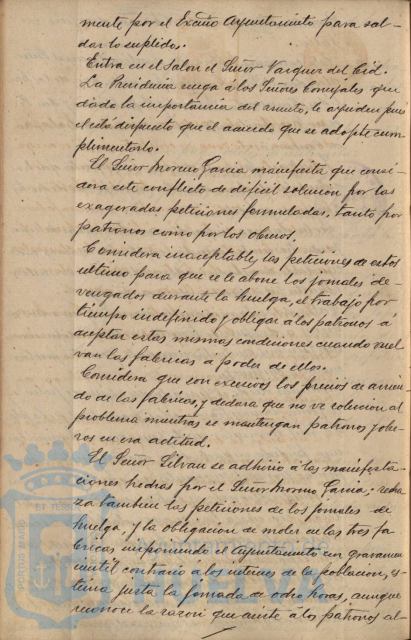 mente por el Excmo Ayuntamiento para sal-
dar lo suplido.
Entra en el Salon el Señor Vazquez del Cid.
La Presidencia ruega á los Señores Concejales que
dada la importancia del asunto, le ayuden pues
el está dispuesto que el acuerdo que se adopte cum-
plimentarlo.
El Señor Moreno Garcia manifiesta que consi-
dera este conflicto de dificil solucion por las
exageradas peticiones formuladas, tanto por
patronos como por los obreros.
Considera inaceptables las peticiones de estos
ultimos para que se le abone los jornales de-
vengados durante la huelga, el trabajo por
tiempo indefinido y obligar á los patronos á
aceptar estas mismas condiciones cuando vuel
van las fabricas á poder de ellos.
Considera que son excesivos los precios de arrien
do de las fabricas, y declara que no ve solucion al
problema mientras se mantengan patronos y obre-
ros en esa actitud.
El Señor se adhirio á las manifesta-
ciones hechas por el Señor Moreno Garcia; recha
za tambien las peticiones de los jornales de
huelga, y la obligacion de moler en las tres fa
bricas imponiendo al Ayuntamiento un gravamen
inutil contrario á los intereses de la poblacion, es-
tima justa la jornada de ocho horas, aunque
reconoce la razon que asiste á los patronos al-
PORTUS MAGN
ET TESS